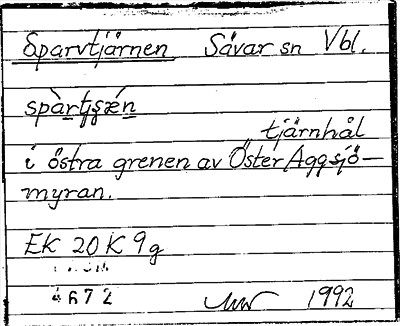 Sparvtjärnen Sävar sn Vbl.
tjärnhål
i östra grenen av Öster Aggsjö-
myran.
EK 20 K 9 g
4672 1992